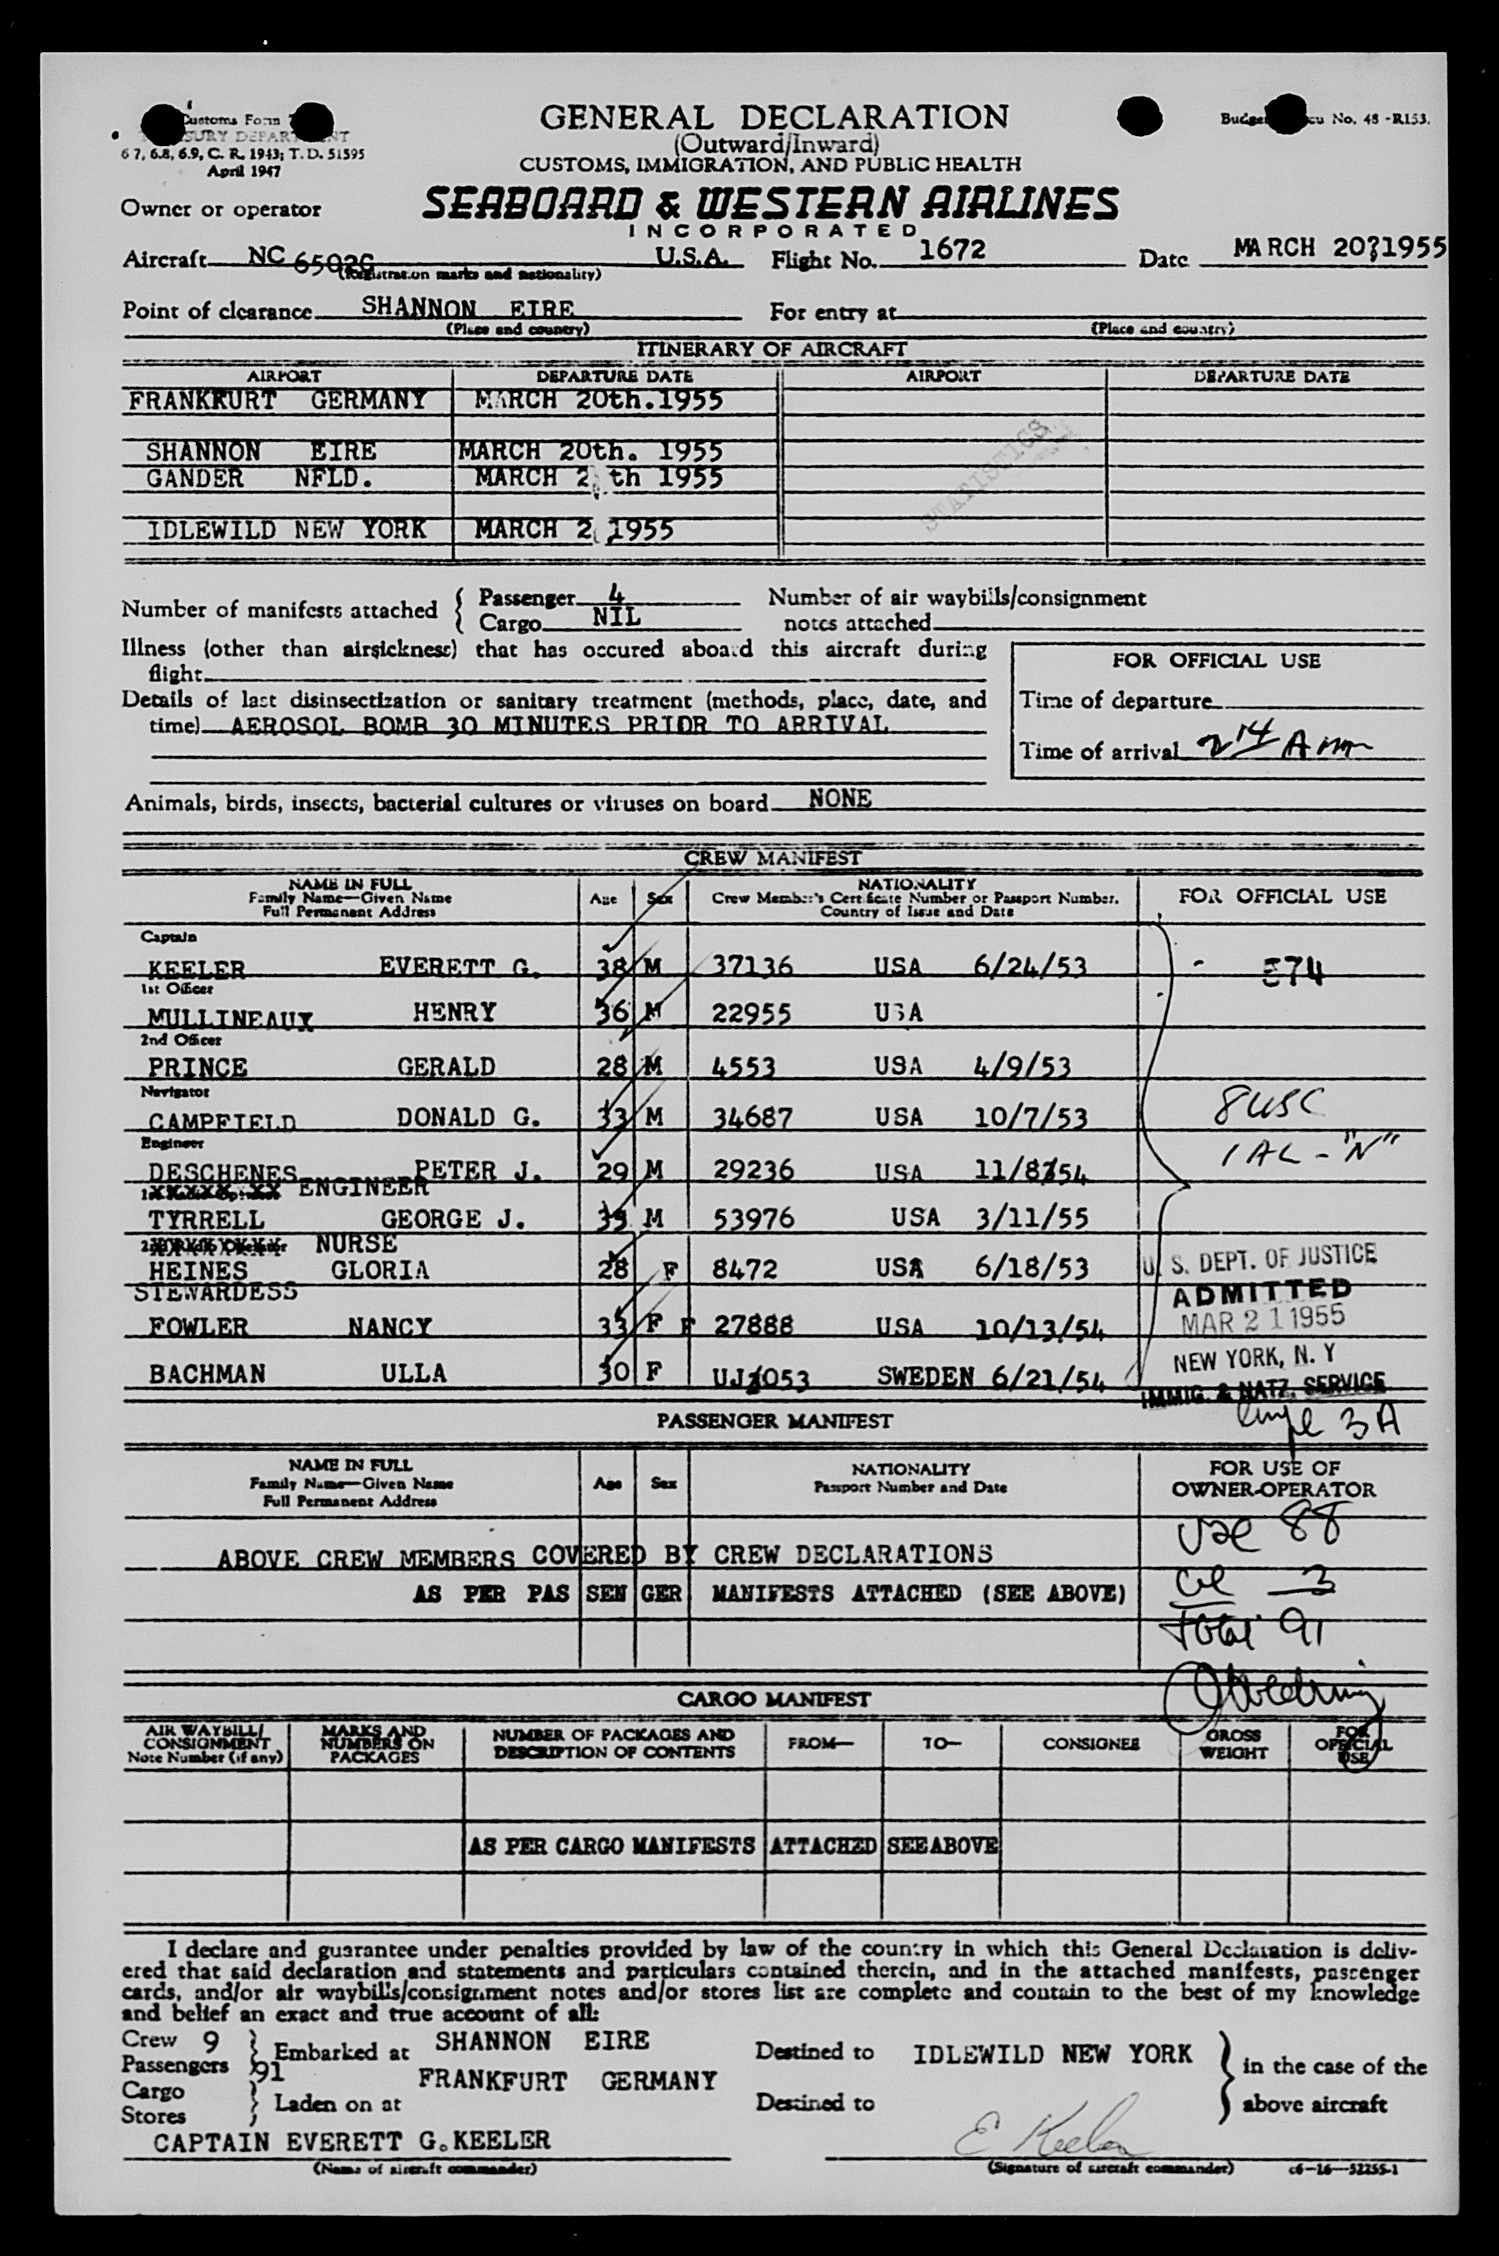 Customs Form
GENERAL DECLARATION
(Outward/Inward)
CUSTOMS, IMMIGRATION, AND PUBLIC HEALTH
No. 48-R153.
6.7, 6.8, 6.9, C. R. 1943; T. D. 51595
April 1947
SEABOARD & WESTERN AIRLINES
INCORPORATED
Owner or operator
Aircraft NC U.S.A. Flight No. 1672 Date MARCH 20, 1955
(Registration marks and nationality)
Point of clearance SHANNON EIRE For entry at
(Place and country) (Place and country)
ITINERARY OF AIRCRAFT
AIRPORT DEPARTURE DATE AIRPORT DEPARTURE DATE
FRANKRURT GERMANY MARCH 20th.1955
SHANNON EIRE MARCH 20th. 1955
GANDER NFLD. MARCH th 1955
IDLEWILD NEW YORK MARCH 1955
STATISTICS
Number of manifests attached { Passenger 4 Number of air waybills/consignment
Cargo NIL notes attached
Illness (other than airsickness) that has occured aboard this aircraft during
flight
Details of last disinsectization or sanitary treatment (methods, place, date, and
time) AEROSOL BOMB 30 MINUTES PRIOR TO ARRIVAL
FOR OFFICIAL USE
Time of departure
Time of arrival 2 14 Am
Animals, birds, insects, bacterial cultures or viruses on board NONE
CREW MANIFEST
NAME IN FULL
Family Name—Given Name
Full Permanent Address
Age Sex
NATIONALITY
Crew Member's Certificate Number or Passport Number.
Country of Issue and Date
FOR OFFICIAL USE
Captain
KEELER EVERETT G. 38 M 37136 USA 6/24/53
574
1st Officer
MULLINEAUX HENRY 36 M 22955 USA
2nd Officer
PRINCE GERALD 28 M 4553 USA 4/9/53
Navigator
CAMPFIELD DONALD G. 33 M 34687 USA 10/7/53
8 USC
1 AL - "N"
Engineer
DESCHENES PETER J. 29 M 29236 USA 11/8/54
ENGINEER
TYRRELL GEORGE J. 39 M 53976 USA 3/11/55
NURSE
HEINES GLORIA 28 F 8472 USA 6/18/53
STEWARDESS
FOWLER NANCY 33 F F 27888 USA 10/13/54
BACHMAN ULLA 30 F SWEDEN 6/21/54
U. S. DEPT. OF JUSTICE
ADMITTED
MAR 21 1955
NEW YORK, N. Y
IMMIG. & NATZ. SERVICE
3A
PASSENGER MANIFEST
NAME IN FULL
Family Name—Given Name
Full Permanent Address
Age Sex
NATIONALITY
Passport Number and Date
FOR USE OF
OWNER-OPERATOR
USC 88
ABOVE CREW MEMBERS COVERED BY CREW DECLARATIONS
3
AS PER PAS SEN GER MANIFESTS ATTACHED (SEE ABOVE)
Total 91
CARGO MANIFEST
AIR WAYBILL/
CONSIGNMENT
Note Number (if any)
MARKS AND
NUMBERS ON
PACKAGES
NUMBER OF PACKAGES AND
DESCRIPTION OF CONTENTS
FROM— TO— CONSIGNEE
GROSS
WEIGHT
FOR
OFFICIAL
USE
AS PER CARGO MANIFESTS ATTACHED SEE ABOVE
I declare and guarantee under penalties provided by law of the country in which this General Declaration is deliv-
ered that said declaration and statements and particulars contained therein, and in the attached manifests, passenger
cards, and/or air waybills/consignment notes and/or stores list are complete and contain to the best of my knowledge
and belief an exact and true account of all:
Crew 9 } Embarked at SHANNON EIRE Destined to IDLEWILD NEW YORK } in the case of the
Passengers 91
Cargo } Laden on at FRANKFURT GERMANY Destined to above aircraft
Stores
CAPTAIN EVERETT G. KEELER E Keeler
(Name of aircraft commander) (Signature of aircraft commander) c6—16—52255-1